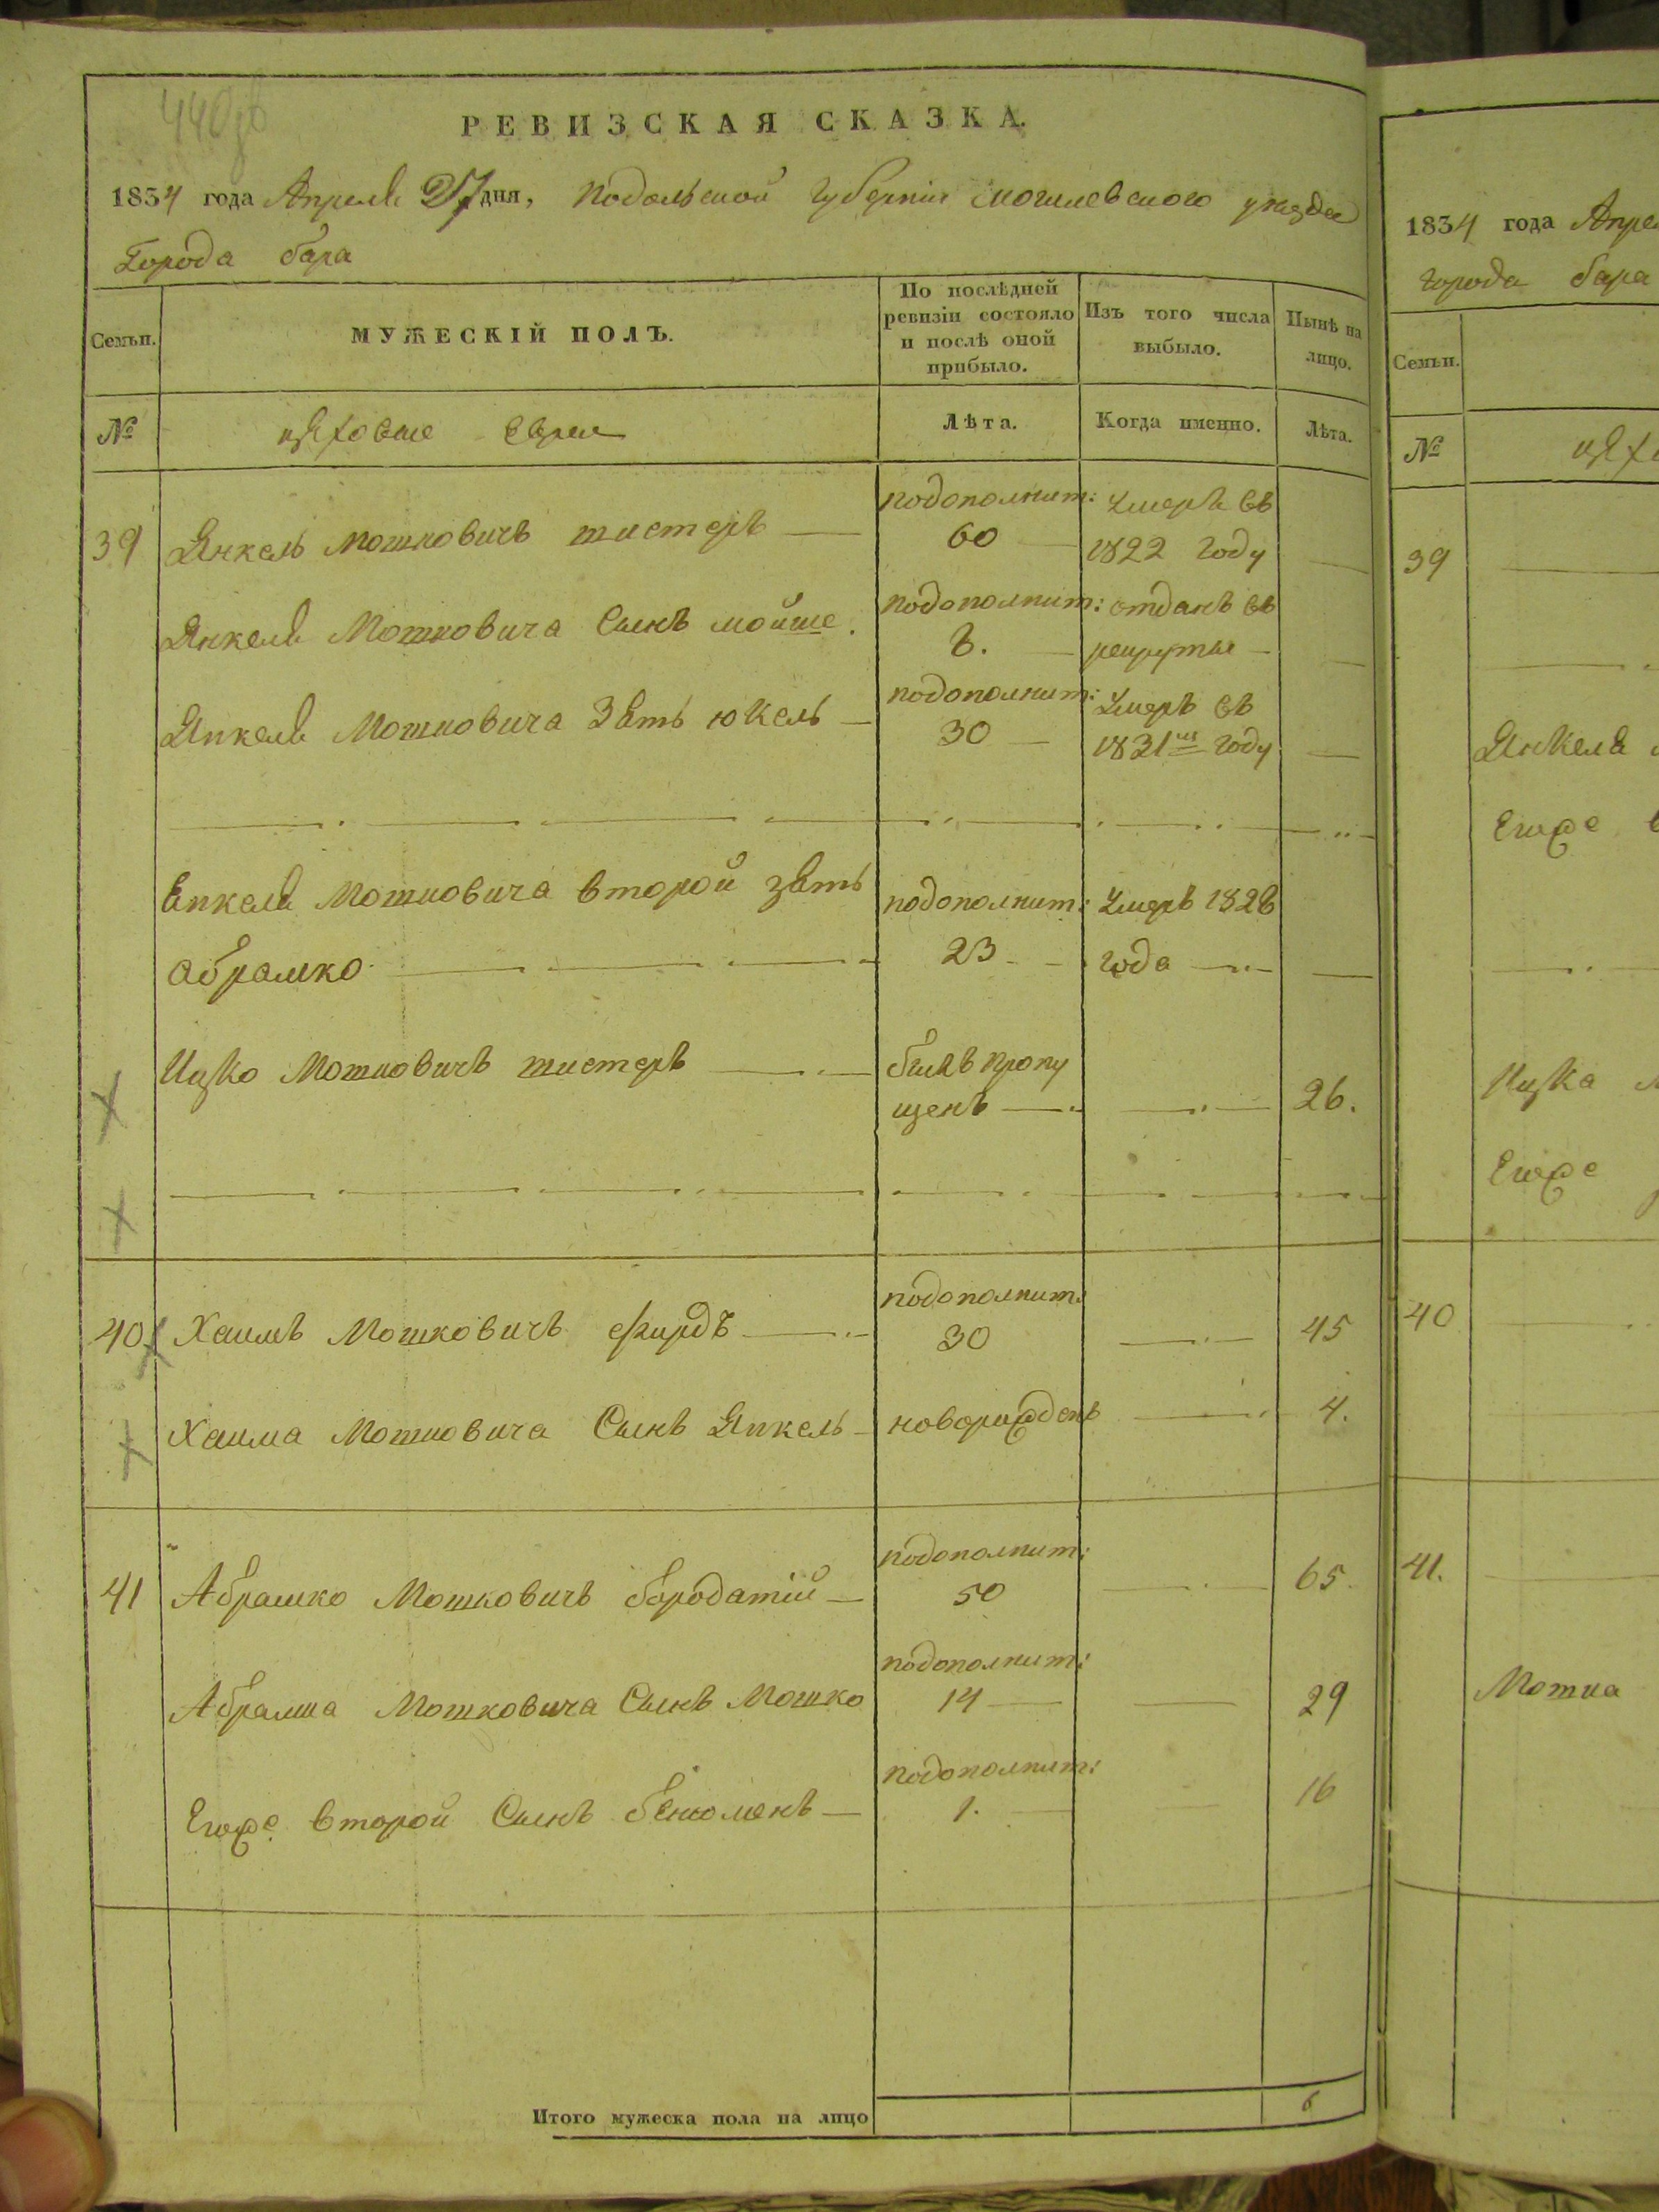 РЕВИЗСКАЯ СКАЗКА.
1834 года Апреля 27 дня, подольской губернии могилевского уезда
Города бара
Семьи.
МУЖЕСКІЙ ПОЛЪ.
По послѣдней
ревизіи состояло
и послѣ оной
прибыло.
Изъ того числа
выбыло.
Нынѣ на
лицо.
№
цеховые евреи
Лѣта.
Когда именно.
Лѣта.
39 Янкель Мошковичъ тистеръ
подополнит:
60
Умеръ въ
1822 году
Янкеля Мошковича Сынъ мойше.
подополнит:
8.
отданъ въ
рекруты
Янкеля Мошковича Зять юкель
подополнит:
30
Умеръ въ
1831мъ году
Янкеля Мошковича второй зять
абрамко
подополнит:
23
Умеръ 1828
года
Ицко Мошковичъ тистеръ
былъ пропу
щенъ
26.
40 Хаимъ Мошковичъ
подополнит:
30
45
Хаима Мошковича Сынъ Янкель
новорожденъ
4.
41 Абрамко Мошковичъ бородатій
подополнит:
50
65.
Абрамка Мошковича Сынъ Мошко
подополнит:
14
29
Егоже второй Сынъ бенюменъ
подополнит:
1.
16
Итого мужеска пола на лицо
6
1834 года Апре
города бара
Семьи.
№
39
Янкеля
Егоже
Ицка
Егоже
40
41.
Мошка